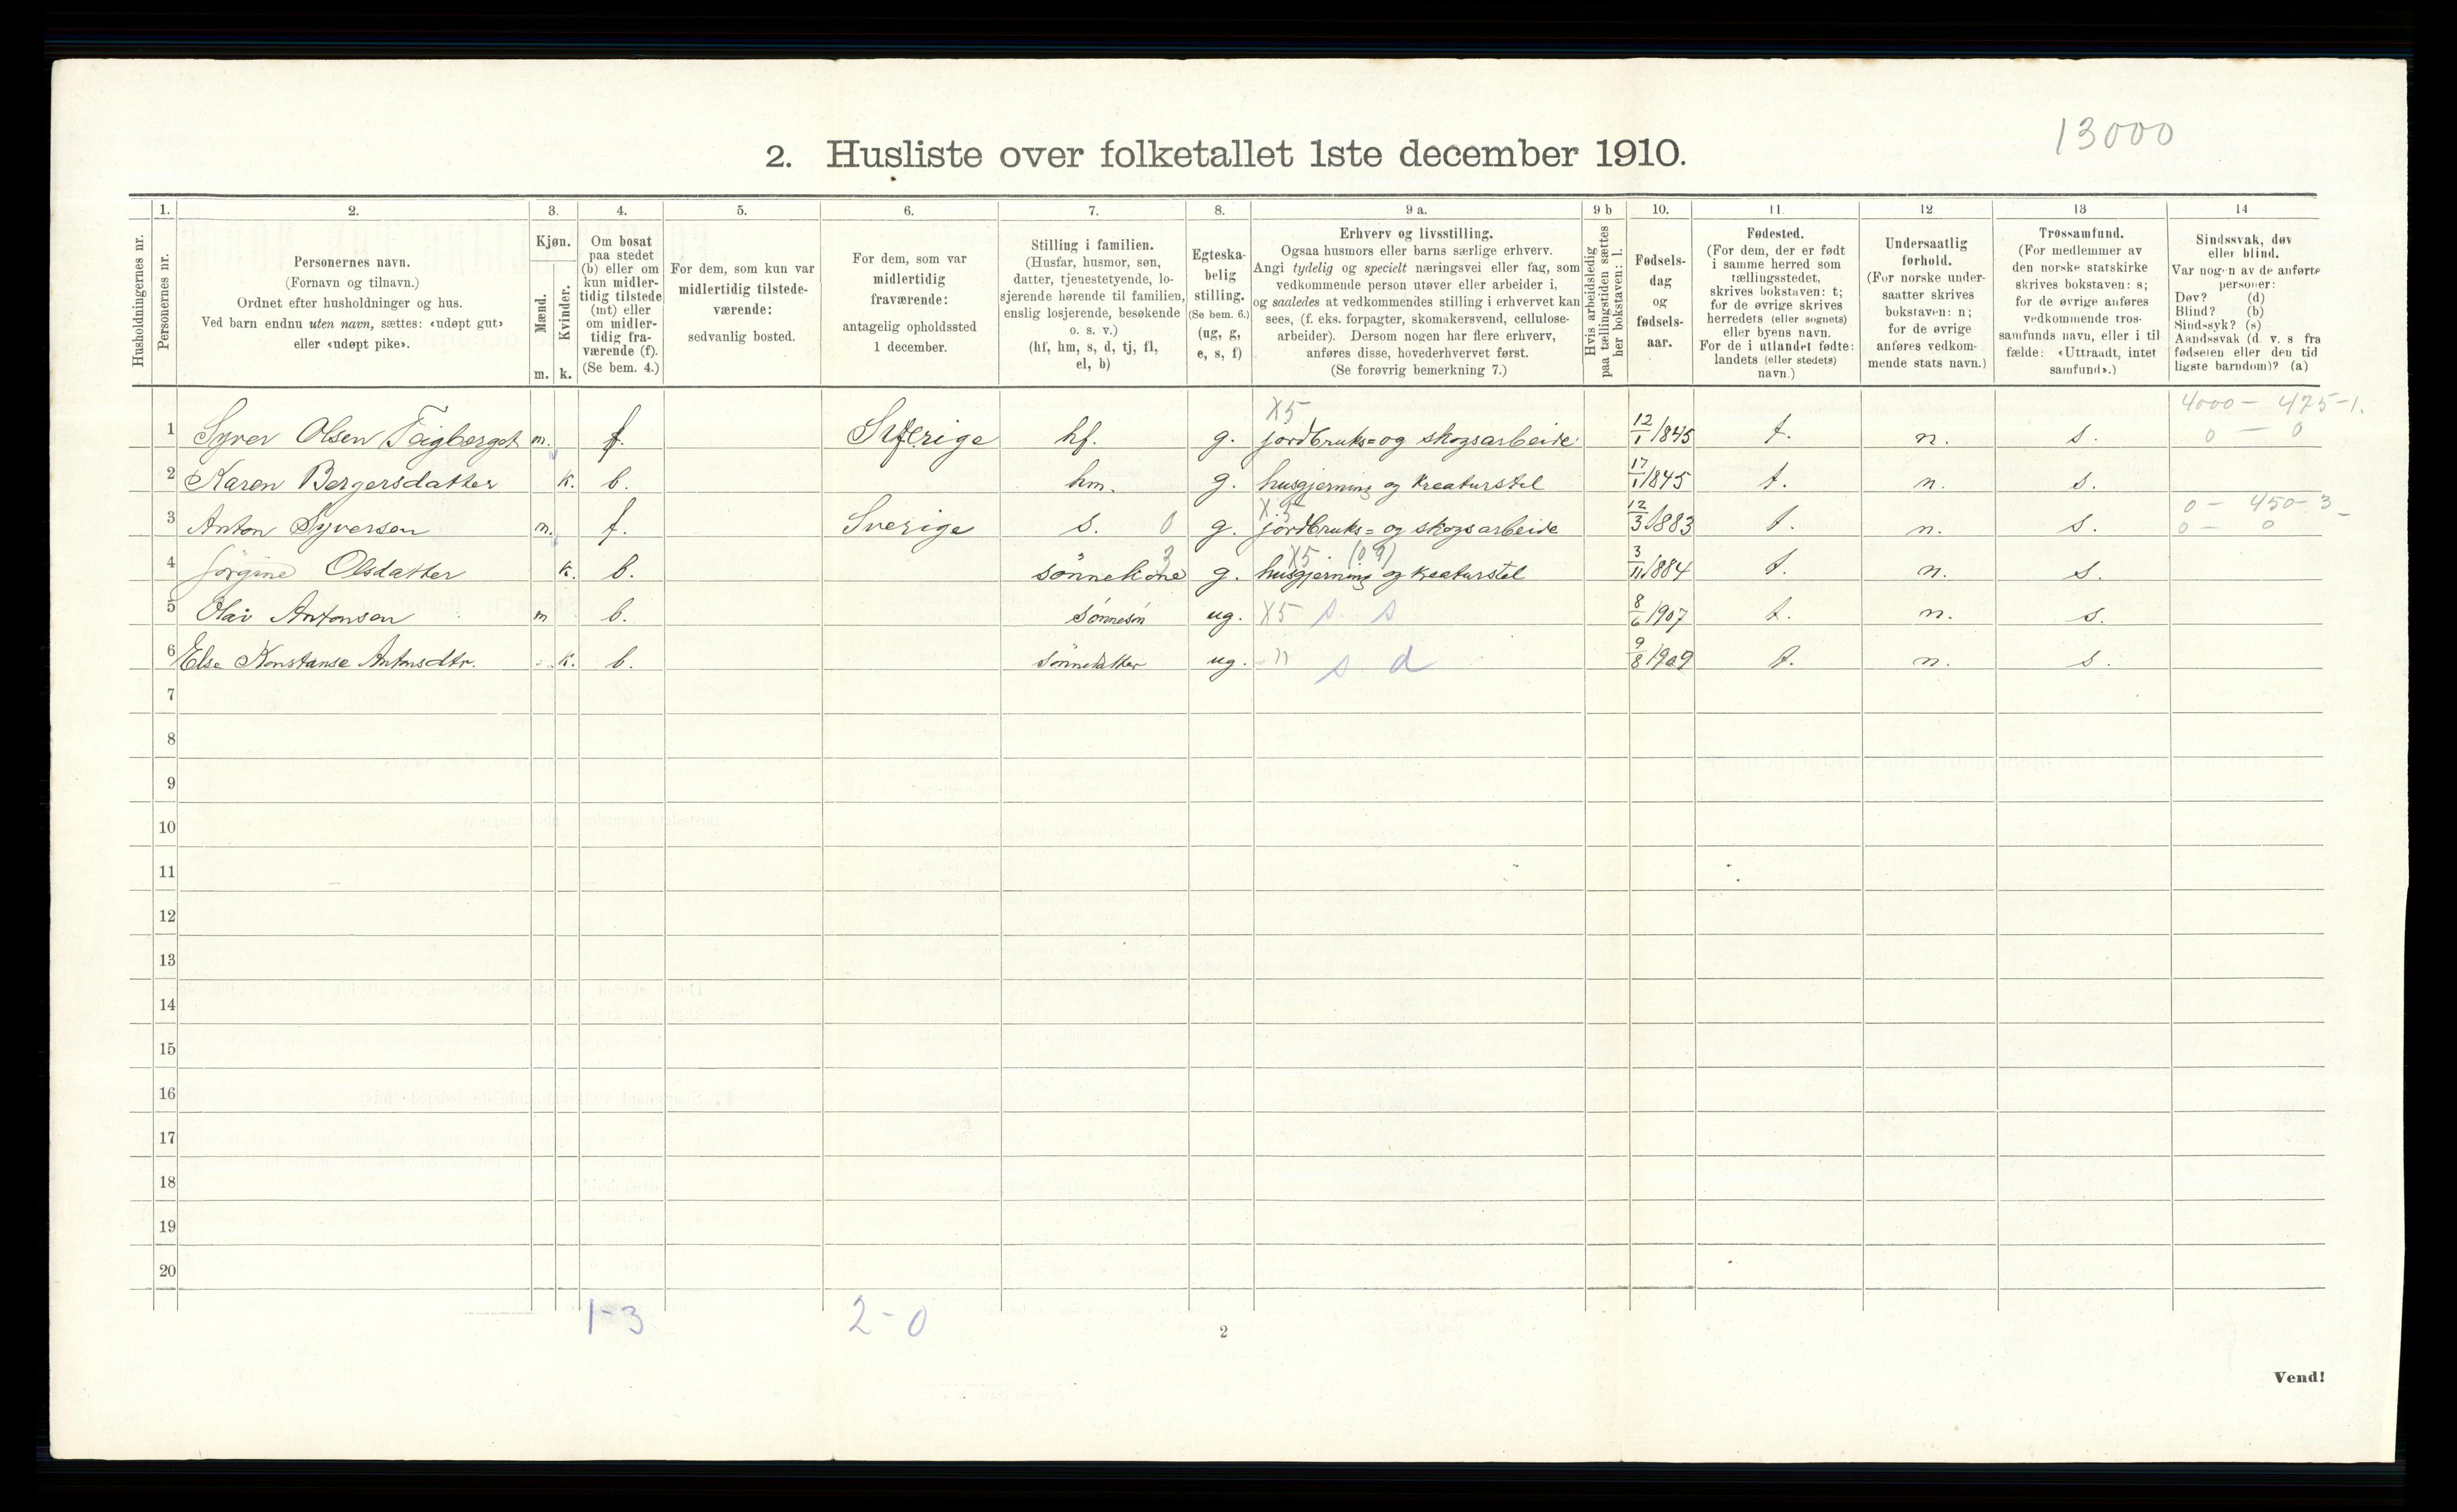 13000
2. Husliste over folketallet 1ste december 1910.
Husholdningernes nr.
1. Personernes nr.
2. Personernes navn.
(Fornavn og tilnavn.)
Ordnet efter husholdninger og hus.
Ved barn endnu uten navn, sættes: «udøpt gut»
eller «udøpt pike».
3. Kjøn.
Mænd. m.
Kvinder. k.
4. Om bosat
paa stedet
(b) eller om
kun midler-
tidig tilstede
(mt) eller
om midler-
tidig fra-
værende (f).
(Se bem. 4.)
5. For dem, som kun var
midlertidig tilstede-
værende:
sedvanlig bosted.
6. For dem, som var
midlertidig
fraværende:
antagelig opholdssted
1 december.
7. Stilling i familien.
(Husfar, husmor, søn,
datter, tjenestetyende, lo-
sjerende hørende til familien,
enslig losjerende, besøkende
o. s. v.)
(hf, hm, s, d, tj, fl,
el, b)
8. Egteska-
belig
stilling.
(Se bem. 6.)
(ug, g,
e, s, f)
9 a. Erhverv og livsstilling.
Ogsaa husmors eller barns særlige erhverv.
Angi tydelig og specielt næringsvei eller fag, som
vedkommende person utøver eller arbeider i,
og saaledes at vedkommendes stilling i erhvervet kan
sees, (f. eks. forpagter, skomakersvend, cellulose-
arbeider). Dersom nogen har flere erhverv,
anføres disse, hovederhvervet først.
(Se forøvrig bemerkning 7.)
9 b Hvis arbeidsledig
paa tællingstiden sættes
her bokstaven: l.
10. Fødsels-
dag
og
fødsels-
aar.
11. Fødested.
(For dem, der er født
i samme herred som
tællingsstedet,
skrives bokstaven: t;
for de øvrige skrives
herredets (eller sognets)
eller byens navn.
For de i utlandet fødte:
landets (eller stedets)
navn.)
12 Undersaatlig
forhold.
(For norske under-
saatter skrives
bokstaven: n;
for de øvrige
anføres vedkom-
mende stats navn.)
13 Trossamfund.
(For medlemmer av
den norske statskirke
skrives bokstaven: s;
for de øvrige anføres
vedkommende tros-
samfunds navn, eller i til
fælde: «Uttraadt, intet
samfund».)
14 Sindssvak, døv
eller blind.
Var nogen av de anførte
personer:
Døv? (d)
Blind? (b)
Sindssyk? (s)
Aandssvak (d. v. s fra
fødselen eller den tid
ligste barndom)? (a)
X5 4000 - 475-1.
1 Syver Olsen Teigberget m. f. Sverige hf. g. jordbruks= og skogsarbeide 12/1 1845 t. n. s. 0 - 0
2 Karen Bergersdatter k. b. hm. g. husgjerning og kreaturstel 17/1 1845 t. n. s.
X.5 0 - 450-3
3 Anton Syversen m. f. Sverige s. 0 g. jordbruks= og skogsarbeide 12/3 1883 t. n. s. 0 - 0
3 X5 (09)
4 Jörgine Olsdatter k. b. sönnekone g. husgjerning og kreaturstel 3/11 1884 t. n. s.
5 Olav Antonsen m b. sönnesön ug. X5 s. s 8/6 1907 t. n. s.
6 Else Konstanse Antonsdtr. k. b. sönnedatter ug. " s d 9/8 1909 t. n. s.
7
8
9
10
11
12
13
14
15
16
17
18
19
20
1-3 2-0
2
Vend!